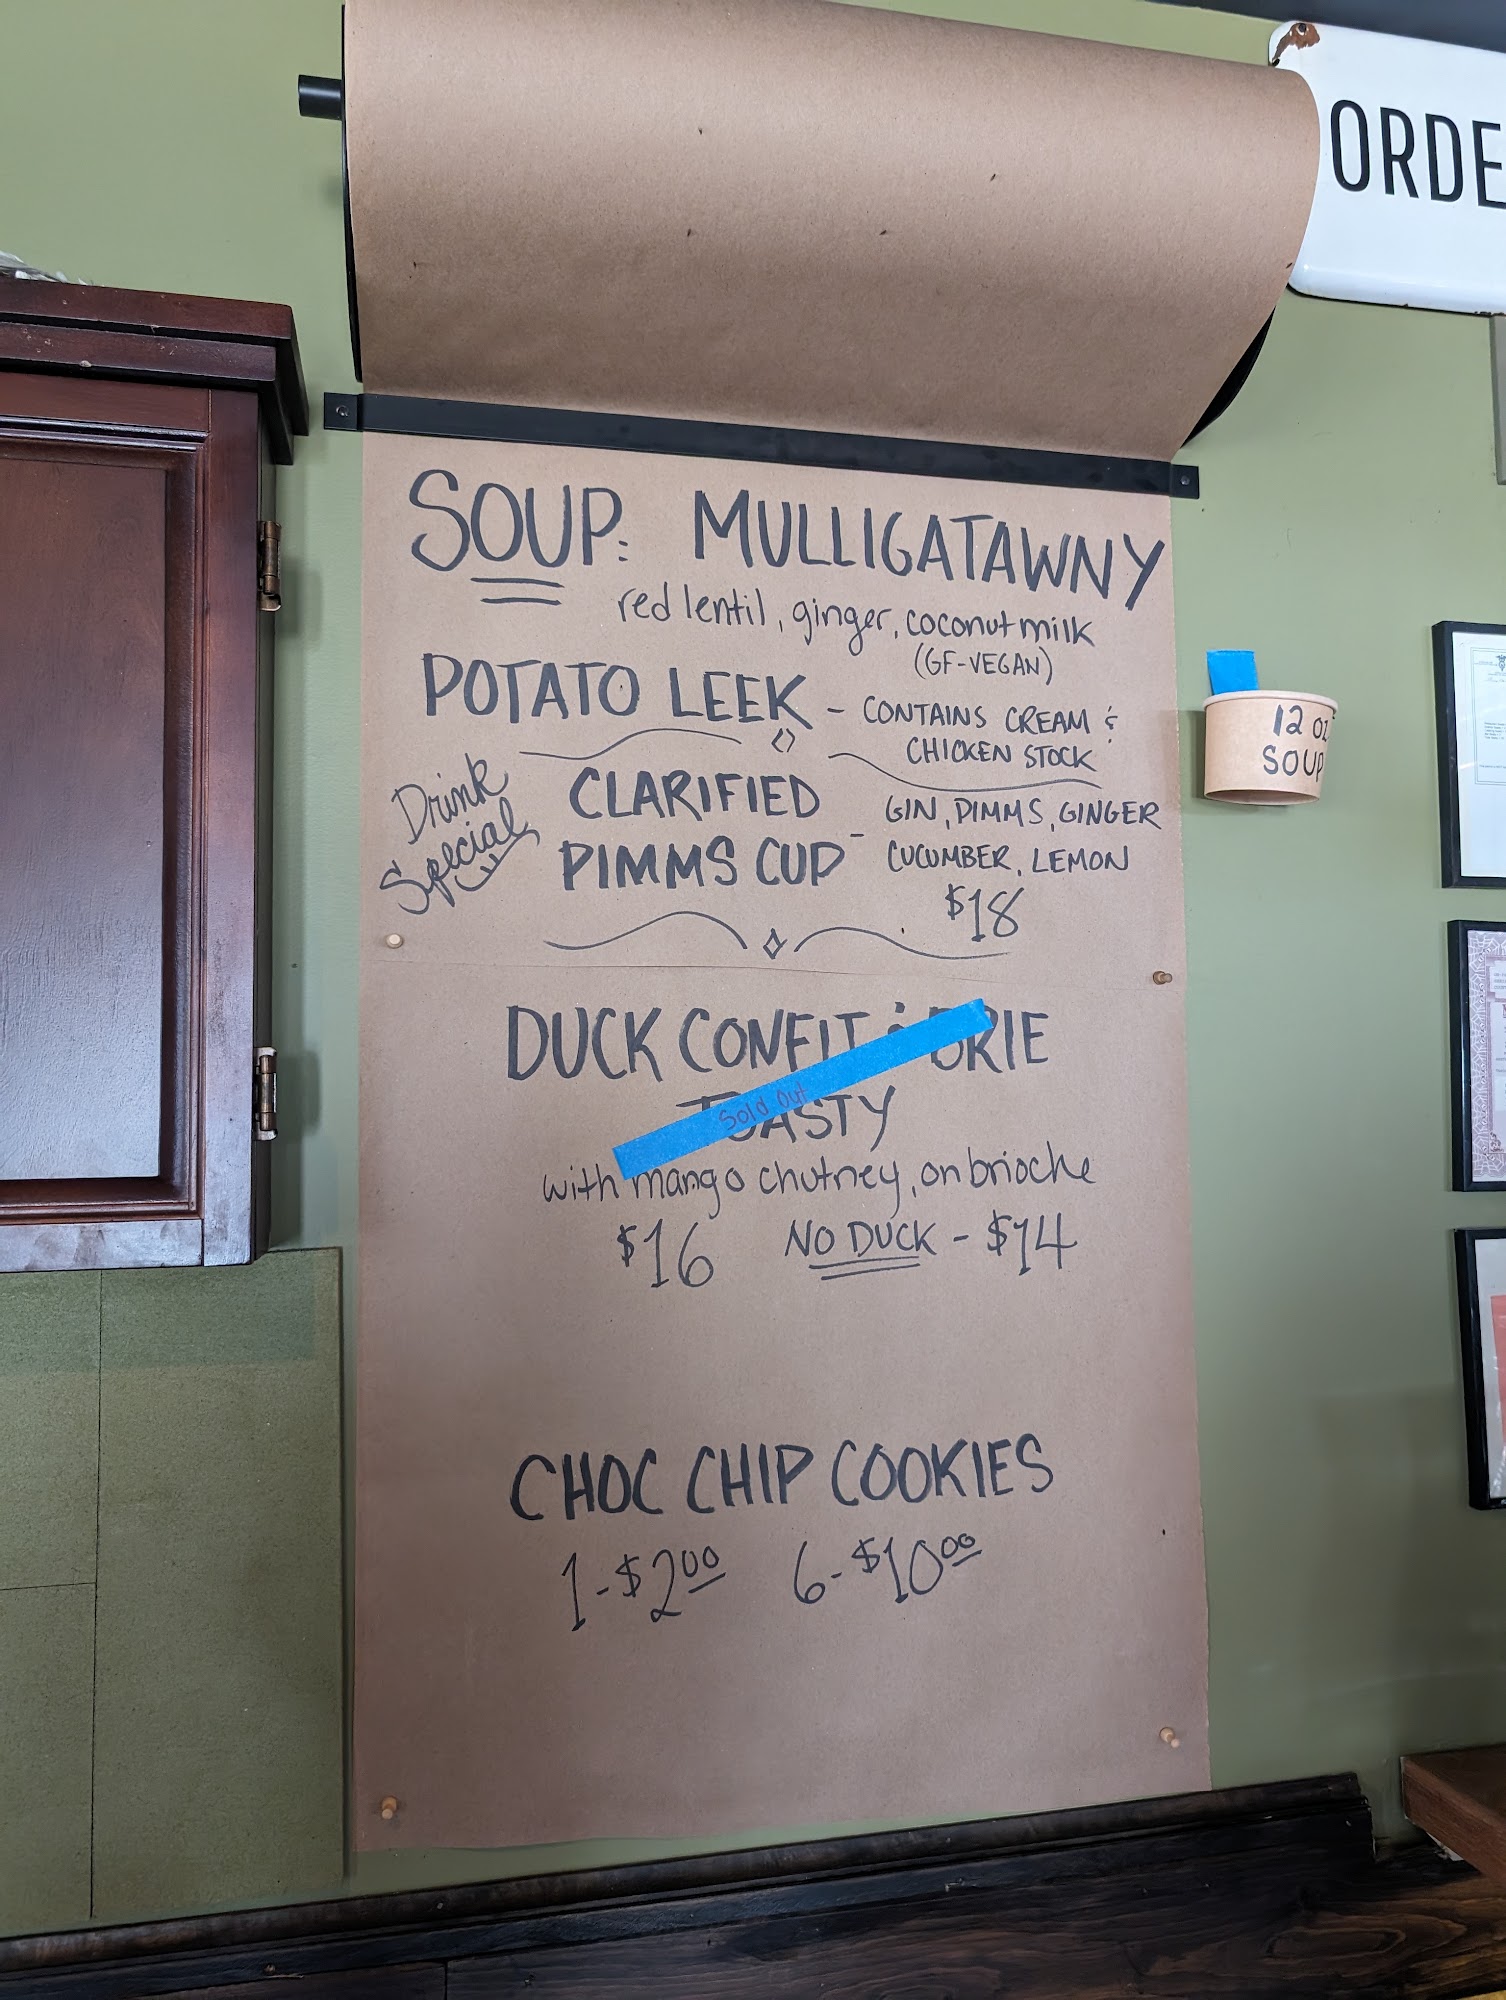 ORDE
SOUP: MULLIGATAWNY
red lentil, ginger, coconut milk
(GF-VEGAN)
POTATO LEEK - CONTAINS CREAM &
CHICKEN STOCK
Drink
Special
CLARIFIED
PIMMS CUP -
GIN, PIMMS, GINGER
CUCUMBER, LEMON
$18
DUCK CONFIT & BRIE
TOASTY
Sold Out
with mango chutney, on brioche
$16 NO DUCK - $14
CHOC CHIP COOKIES
1-$2.00 6-$10.00
12 oz
SOUP